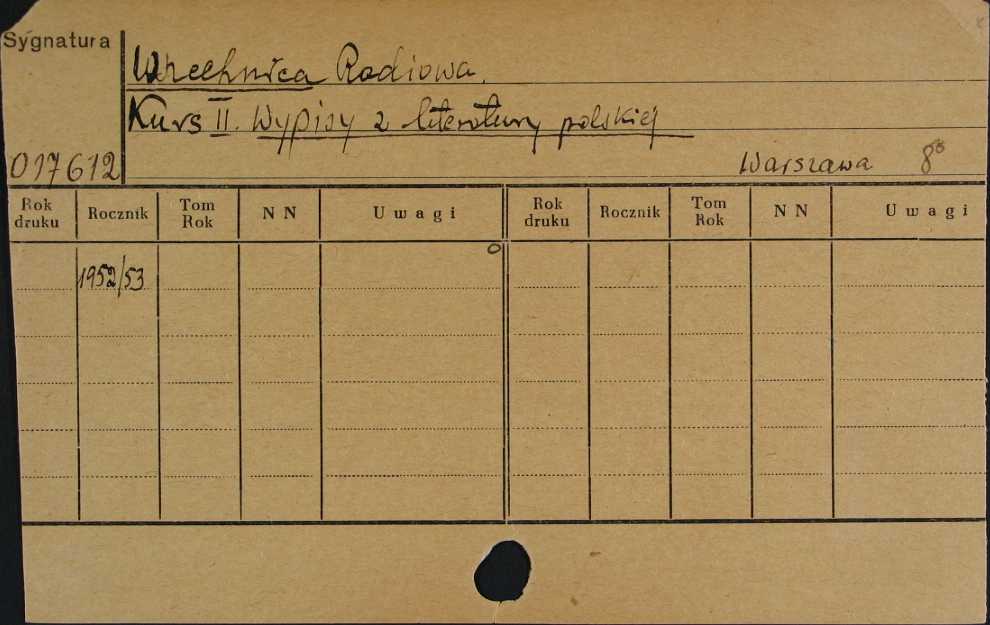 Sygnatura
Wszechnica Radiowa.
Kurs II. Wypisy z literatury polskiej
017612 Warszawa 8°
Rok druku Rocznik Tom Rok N N Uwagi Rok druku Rocznik Tom Rok N N Uwagi
1952/53